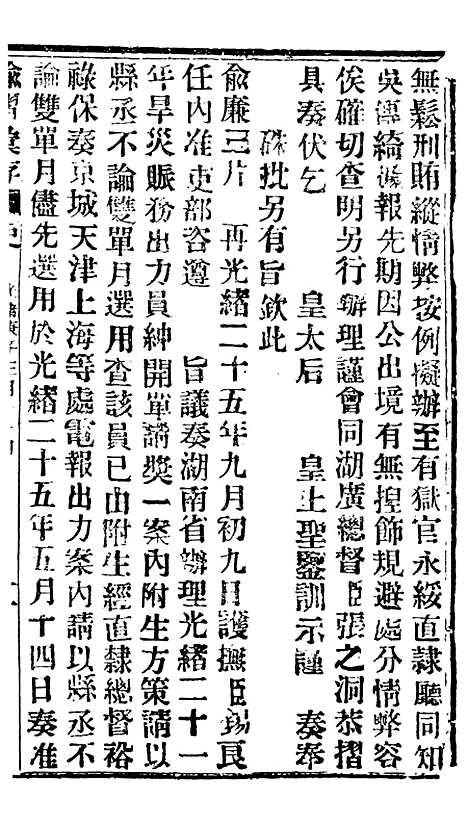 無鬆刑賄縱情弊按例擬辦至有獄官永綏直隸廳同知
吳傳綺據報先期因公出境有無揑飾規避處分情弊容
俟確切查明另行辦理謹會同湖廣總督臣張之洞恭摺
具奏伏乞　皇太后　皇上聖鑒訓示謹　奏奉
硃批另有旨欽此
俞廉三片　再光緒二十五年九月初九日護撫臣錫良
任內准吏部咨遵　旨議奏湖南省辦理光緒二十一
年旱災賑務出力員紳開單請奬一案內附生方策請以
縣丞不論雙單月選用查該員已由附生經直隸總督裕
祿保奏京城天津上海等處電報出力案內請以縣丞不
論雙單月儘先選用於光緒二十五年五月十四日奏准
諭摺彙存